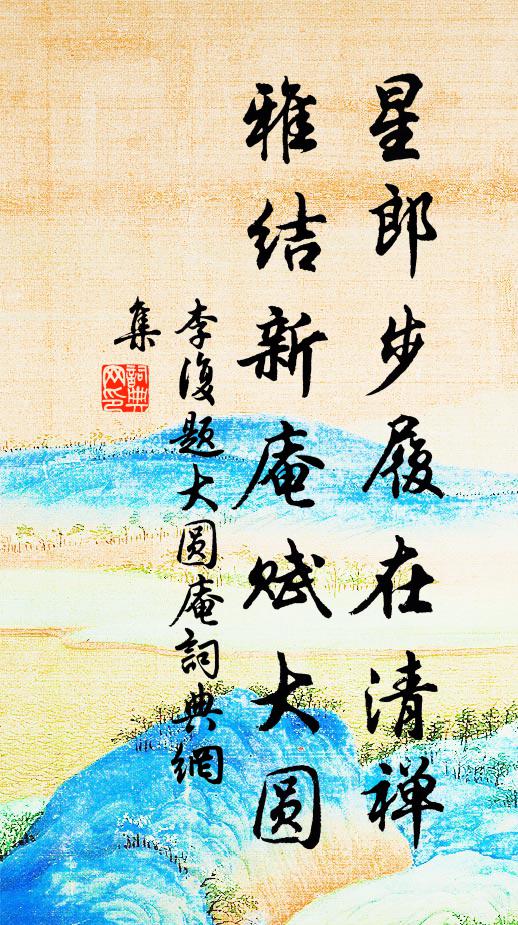 星郎步履在清禅
雅结新庵赋大圆
李復题大圆庵詞典網
集
詞典
网印